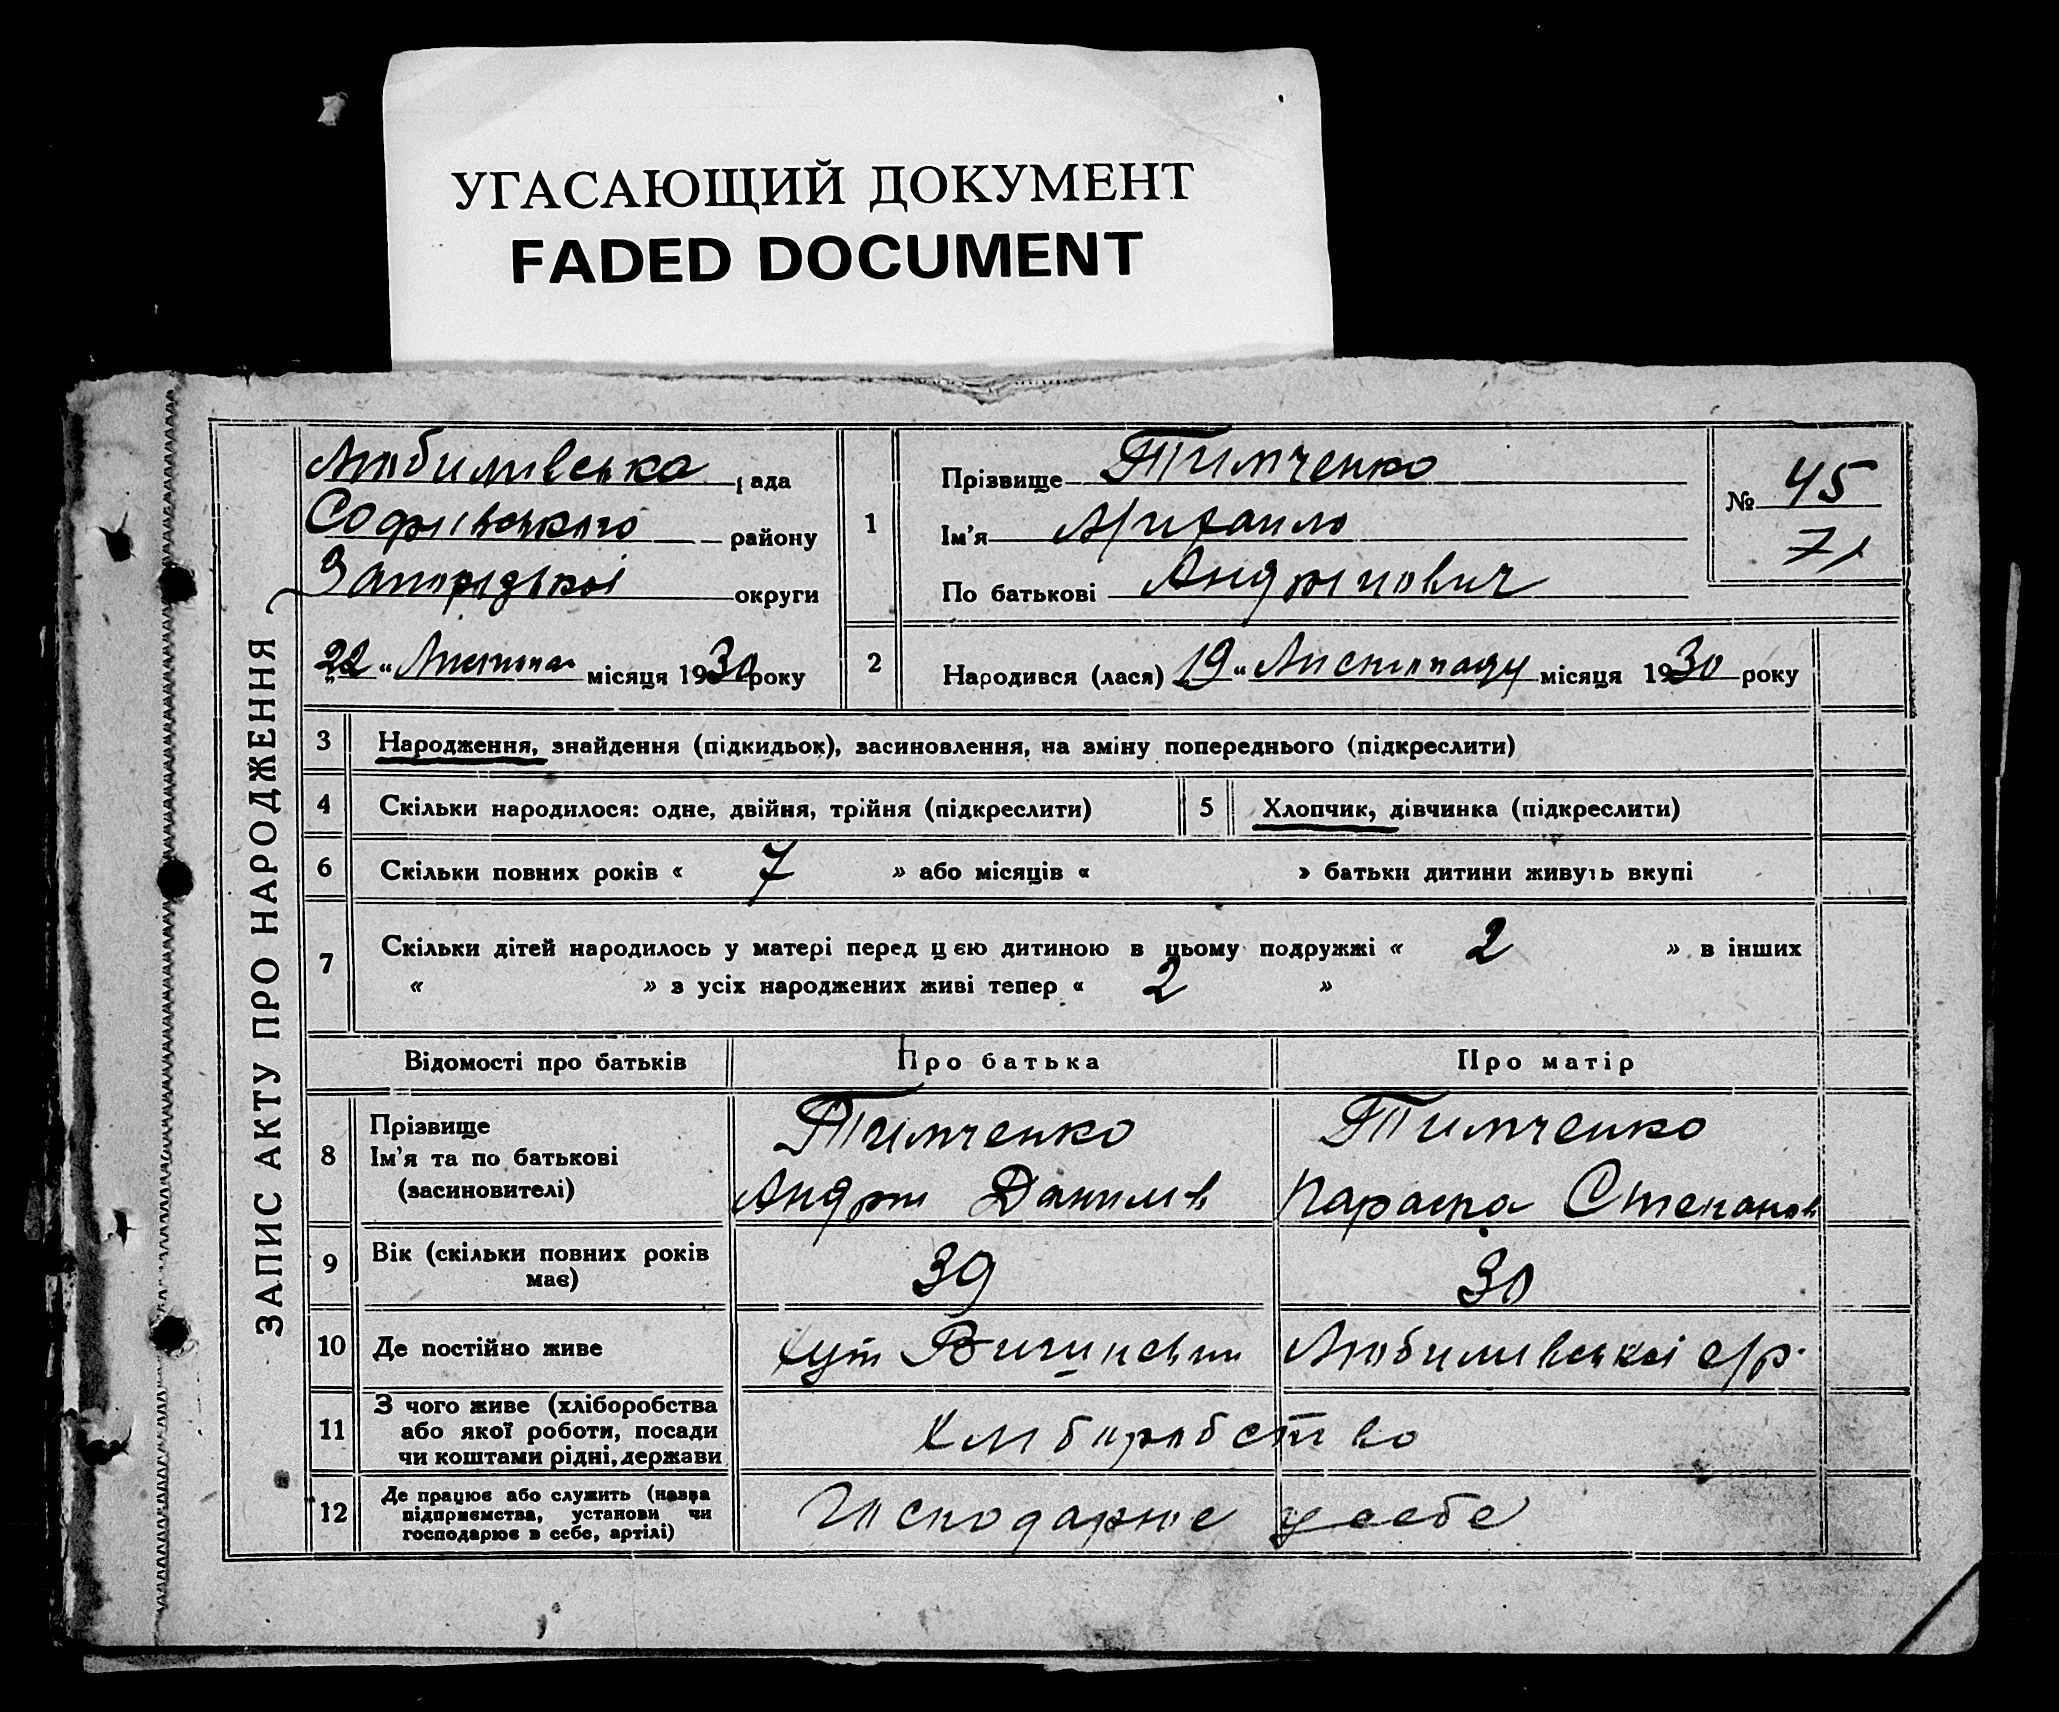 УГАСАЮЩИЙ ДОКУМЕНТ
FADED DOCUMENT
ЗАПИС АКТУ ПРО НАРОДЖЕННЯ
Любимівська рада
Софіївського району
Запорізької округи
22 „ місяця 1930 року
1
Прізвище Тимченко
Ім'я Михайло
По батькові Андрійович
№ 45
71
2
Народився (лася) 19 “ Листопаду місяця 1930 року
3 Народження, знайдення (підкидьок), засиновлення, на зміну попереднього (підкреслити)
4 Скільки народилося: одне, двійня, трійня (підкреслити) 5 Хлопчик, дівчинка (підкреслити)
6 Скільки повних років « 7 » або місяців « » батьки дитини живуть вкупі
7 Скільки дітей народилось у матері перед цією дитиною в цьому подружжі « 2 » в інших
« » з усіх народжених живі тепер « 2 »
Відомості про батьків Про батька Про матір
8 Прізвище
Ім'я та по батькові
(засиновителі)
Тимченко
Андрій Данилов
Тимченко
Параска Степанов
9 Вік (скільки повних років
має)
39 30
10 Де постійно живе хут Любимівської с/р.
11 З чого живе (хліборобства
або якої роботи, посади
чи коштами рідні, держави
Хліборобство
12 Де працює або служить (назва
підприємства, установи чи
господарює в себе, артілі)
Господарює у себе